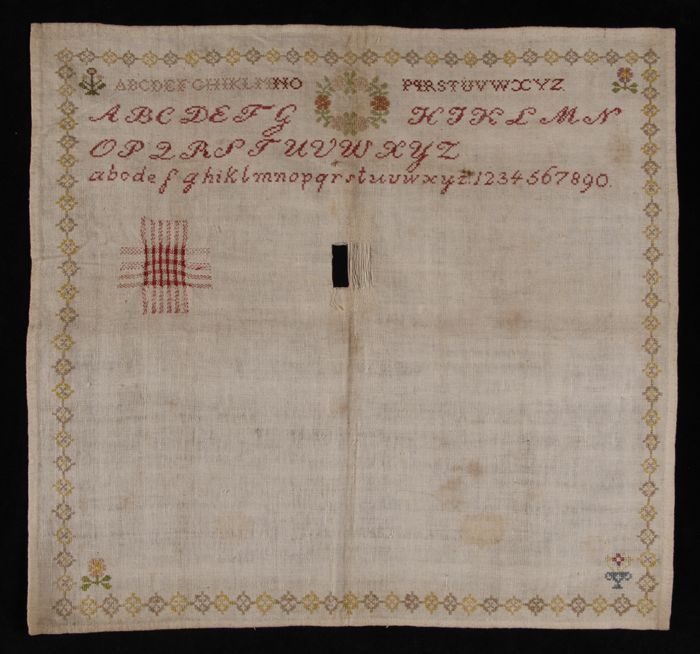 ABCDEFGHIKLMNO PQRSTUVWXYZ.
ABCDEFG HIKLMN
OPQRSTUVWXYZ
abcdefghiklmnopqrstuvwxyz.1234567890.